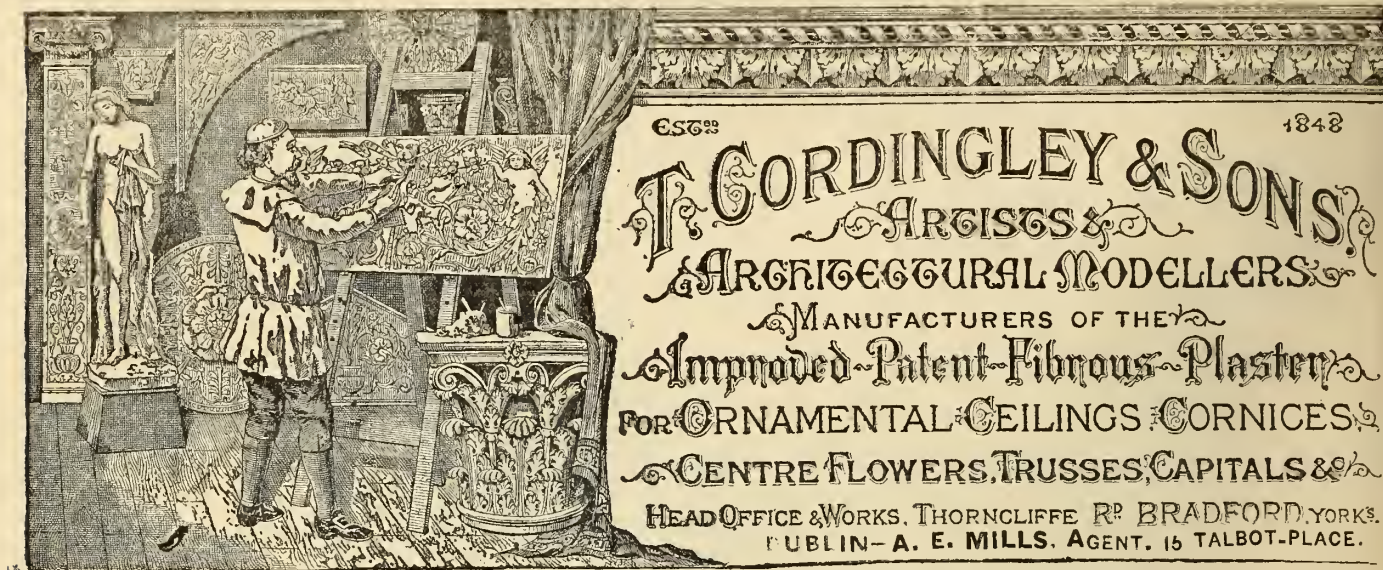 ESTD 1848
T. CORDINGLEY & SONS,
ARTISTS &
ARCHITECTURAL MODELLERS
MANUFACTURERS OF THE
Improved-Patent-Fibrous-Plaster
FOR ORNAMENTAL CEILINGS CORNICES,
CENTRE FLOWERS, TRUSSES, CAPITALS &C
HEAD OFFICE & WORKS, THORNCLIFFE RD BRADFORD, YORKS.
DUBLIN–A. E. MILLS, AGENT. 15 TALBOT-PLACE.